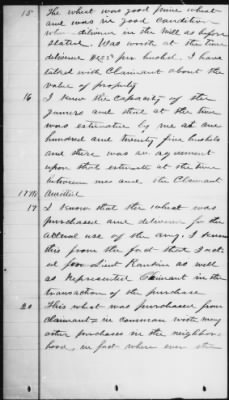 15 The wheat was good prime wheat
and was in good condition
when deliver in the Mill as before
stated. Was worth at the time
deliver per bushel. I have
talked with Claimant about the
value of property
16 I know the capacity of the
and that at the time
was estimated by me at one
hundred and twenty five bushels
and there was an agreement
upon that estimate at the time
between me and the Claimant
17th Omitted
19 I know that the wheat was
purchased and deliver for the
actual use of the army. I know
this from the fact that I act
ed for Lieut Rankin as well
as Represented Claimant in the
transaction of the purchase
20 This wheat was purchased from
claimant in common with many
other purchases in the neighbor
hood, in fact where ever the